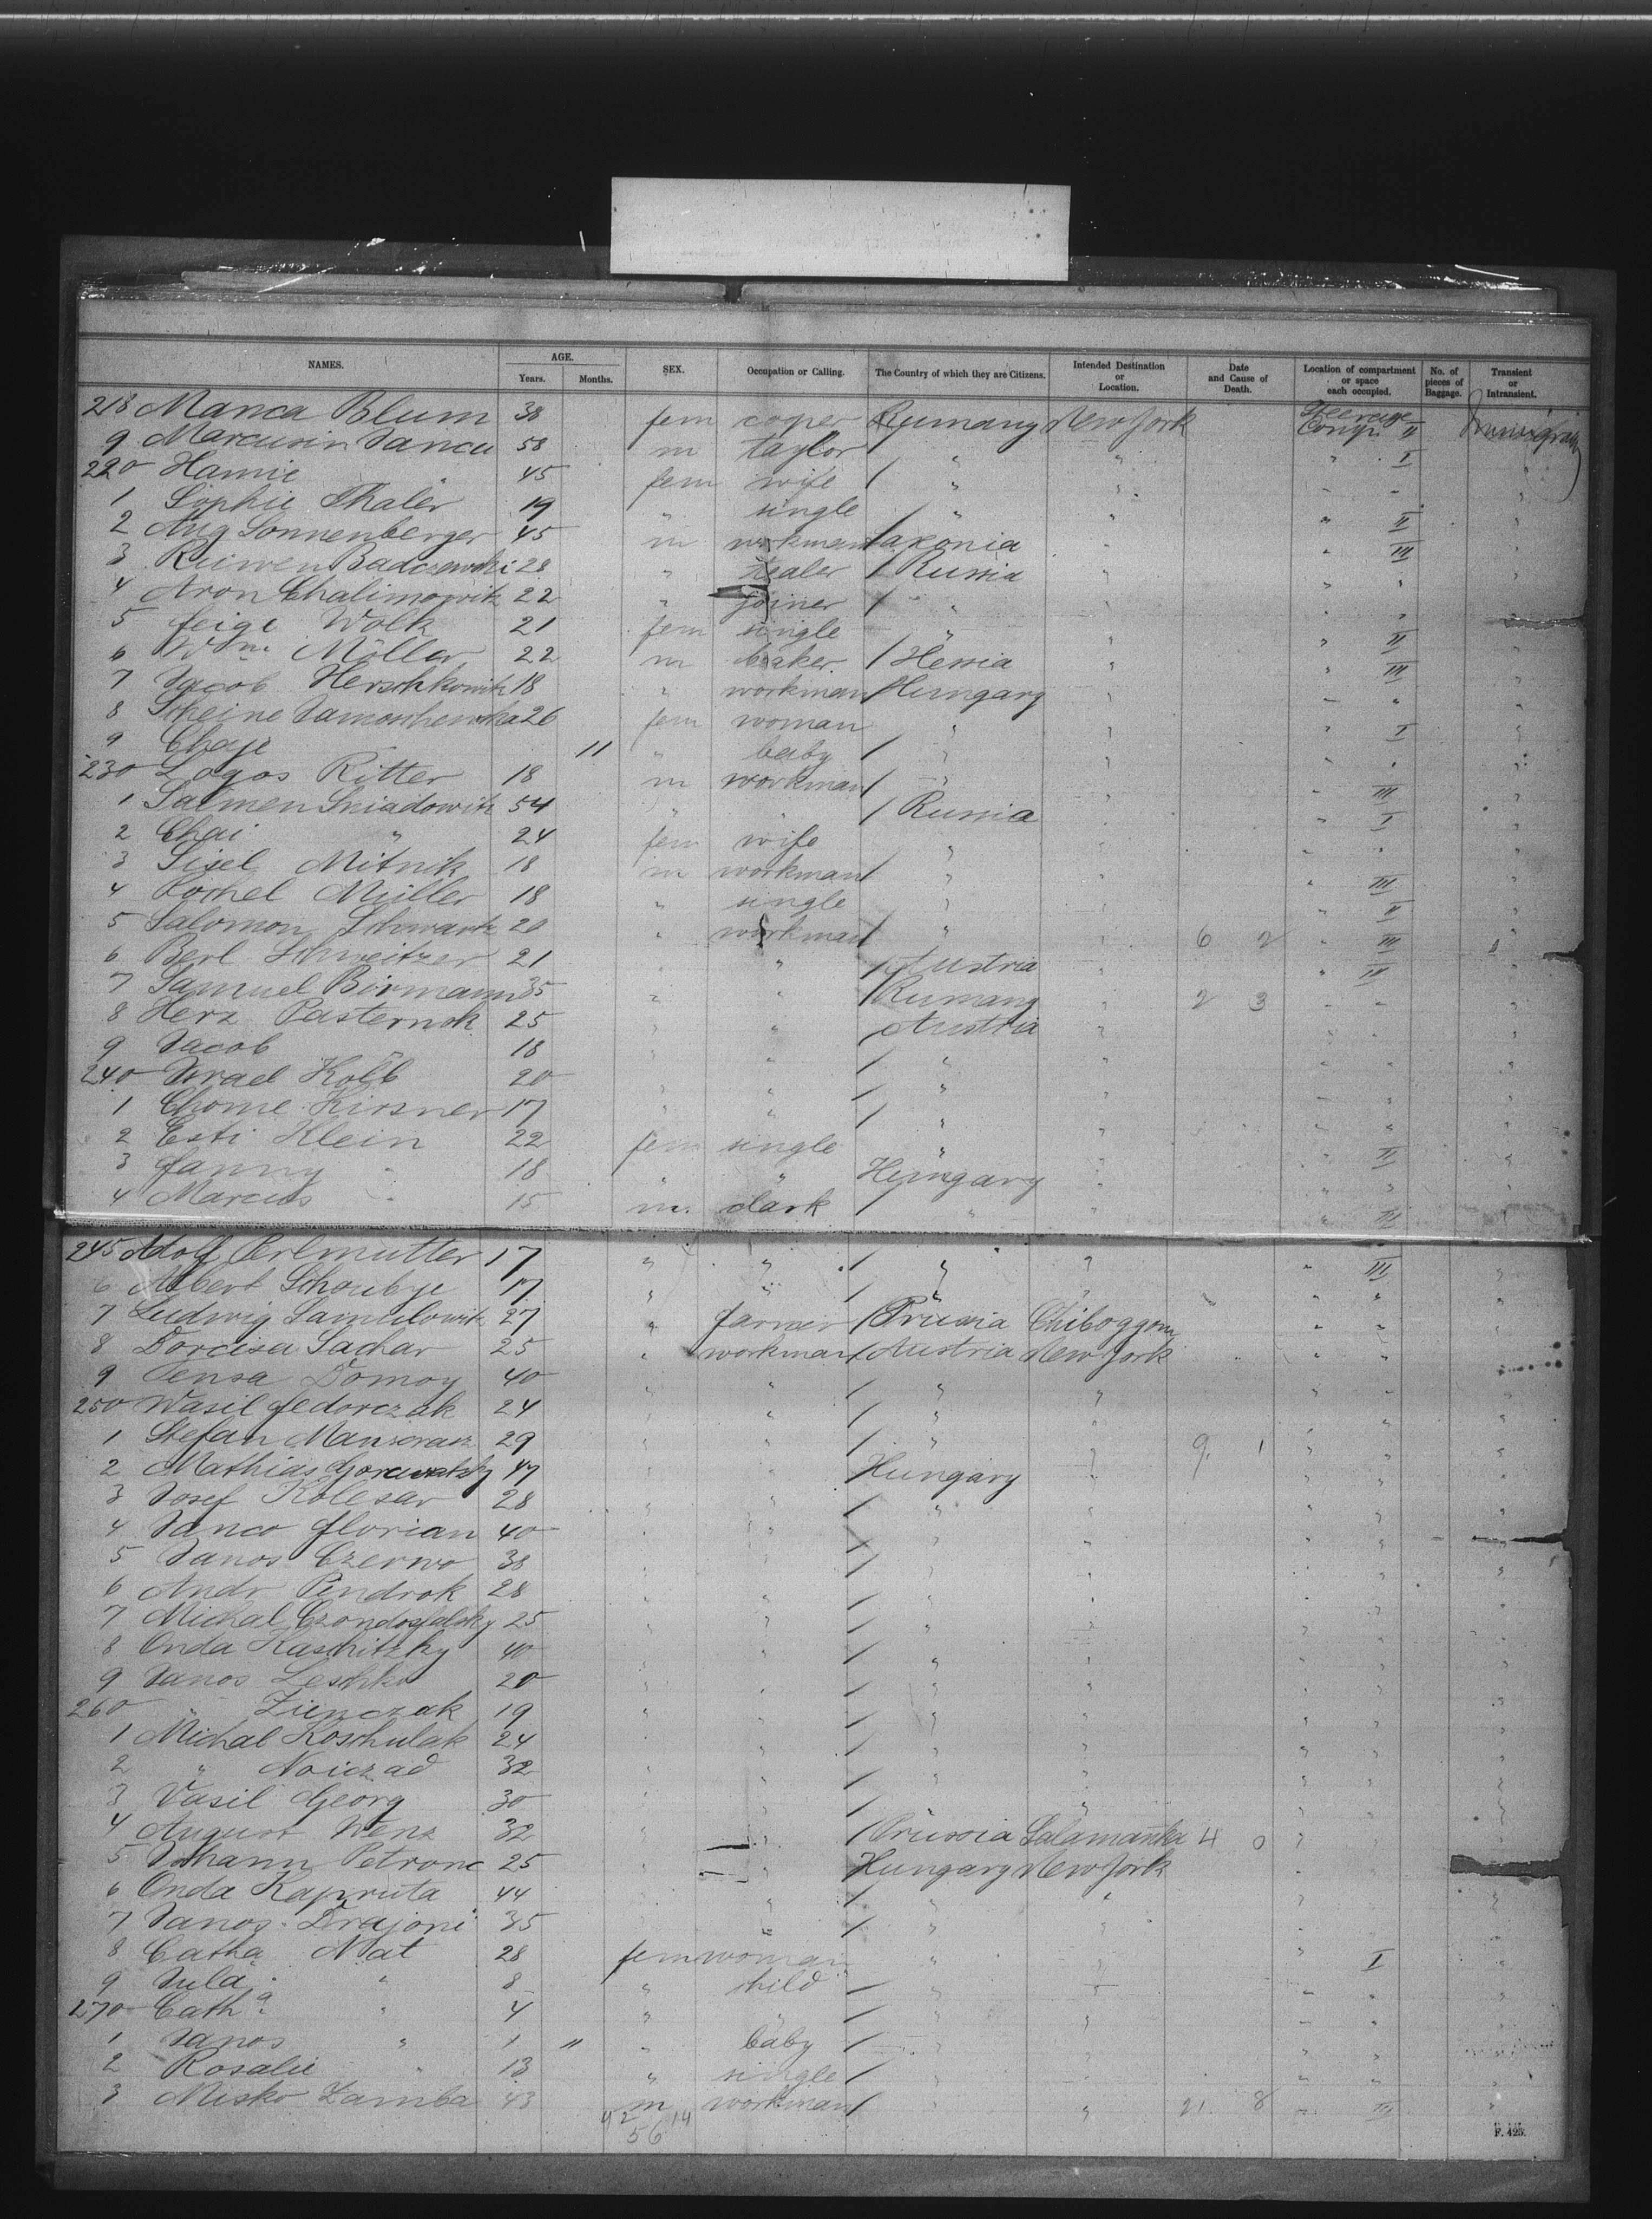 NAMES. AGE. Years. Months. SEX. Occupation or Calling. The Country of which they are Citizens. Intended Destination or Location. Date and Cause of Death. Location of compartment or space each occupied. No. of pieces of Baggage. Transient or Intransient.
218 Manca Blum 38 fem coper Rumany New York Steerage Comp. II
9 Marcusin Jancu 58 m taylor / " " " I "
220 Hannie 45 fem wife / " " " " "
1 Sophie Thaler 19 " single / " " " II "
2 Aug Sonnenberger 45 m workman Saxonia " " III "
3 Ruiwen Badczewski 28 " / Russia " " " "
4 Aron Chalimowitz 22 " joiner / " " " "
5 feige Wolk 21 fem single " " " II "
6 Wm. Möller 22 m baker / Hessia " " III "
7 Jacob Herschkowitz 18 " workman / Hungary " " " "
8 Scheine Jamoschewska 26 fem woman " " " I "
9 Chaje 11 " baby / " " " " "
230 Logos Ritter 18 m workman / " " " III "
1 Salmen Sniadowitz 54 " " / Russia " " I "
2 Chai " 24 fem wife " " " " "
3 Sisel Mitnik 18 m workman / " " " III "
4 Rochel Müller 18 " single " " " II "
5 Salomon Schwartz 20 " workman / " " 6 2 " III "
6 Berl Schweitzer 21 " " / Austria " " III "
7 Samuel Birmann 35 " " / Rumany " 2 3 " " "
8 Herz Pasternak 25 " " Austria " " " "
9 Jacob " 18 " " / " " " " "
240 Israel Kolb 20 " " / " " " " "
1 Chome Kirsner 17 " " / " " " " "
2 Esti Klein 22 fem single " " " II "
3 fanny " 18 " " Hungary " " " "
4 Marcus " 15 m. clark / " " " III "
245 Adolf Perlmutter 17 " " / " " " III "
6 Albert Schoubye 17 " " / " " " " "
7 Ludwig Samulowitz 27 " farmer / Prussia Chiboggom " " "
8 Dorcisa Sachar 25 " workman / Austria New York " " "
9 Pensa Domoy 40 " " / " " " " "
250 Wasil fedorczak 24 " " / " " " " "
1 Stefan 29 " " / " " 9. 1 " " "
2 Mathias 47 " " Hungary " " " "
3 Josef Kolesar 28 " " / " " " " "
4 Janco florian 40 " " / " " " " "
5 Janos Czerwo 38 " " / " " " " "
6 Andr Pendrok 28 " " / " " " " "
7 Michal 25 " " / " " " " "
8 Onda Kaschitzky 40 " " / " " " " "
9 Janos Leschko 20 " " / " " " " "
260 " Zienczak 19 " " / " " " " "
1 Michal Koschulak 24 " " / " " " " "
2 " Noiczad 32 " " / " " " " "
3 Vasil Georg 30 " " / " " " " "
4 August Wenz 32 " " / Prussia Salamanka 4 0 " " "
5 Johann Petronc 25 " " Hungary New York " " "
6 Onda Kapruta 44 " " / " " " " "
7 Janos Drajoni 35 " " / " " " " "
8 Catha Nat 28 fem woman " " " I "
9 Jula " 8 " child / " " " " "
270 Catha " 4 " " / " " " " "
1 Janos " 1 " " baby / " " " " "
2 Rosalie " 13 " single / " " " " "
3 Misko Zamba 43 m workman / " " 21. 8 " III "
42 14
56
F. 425.